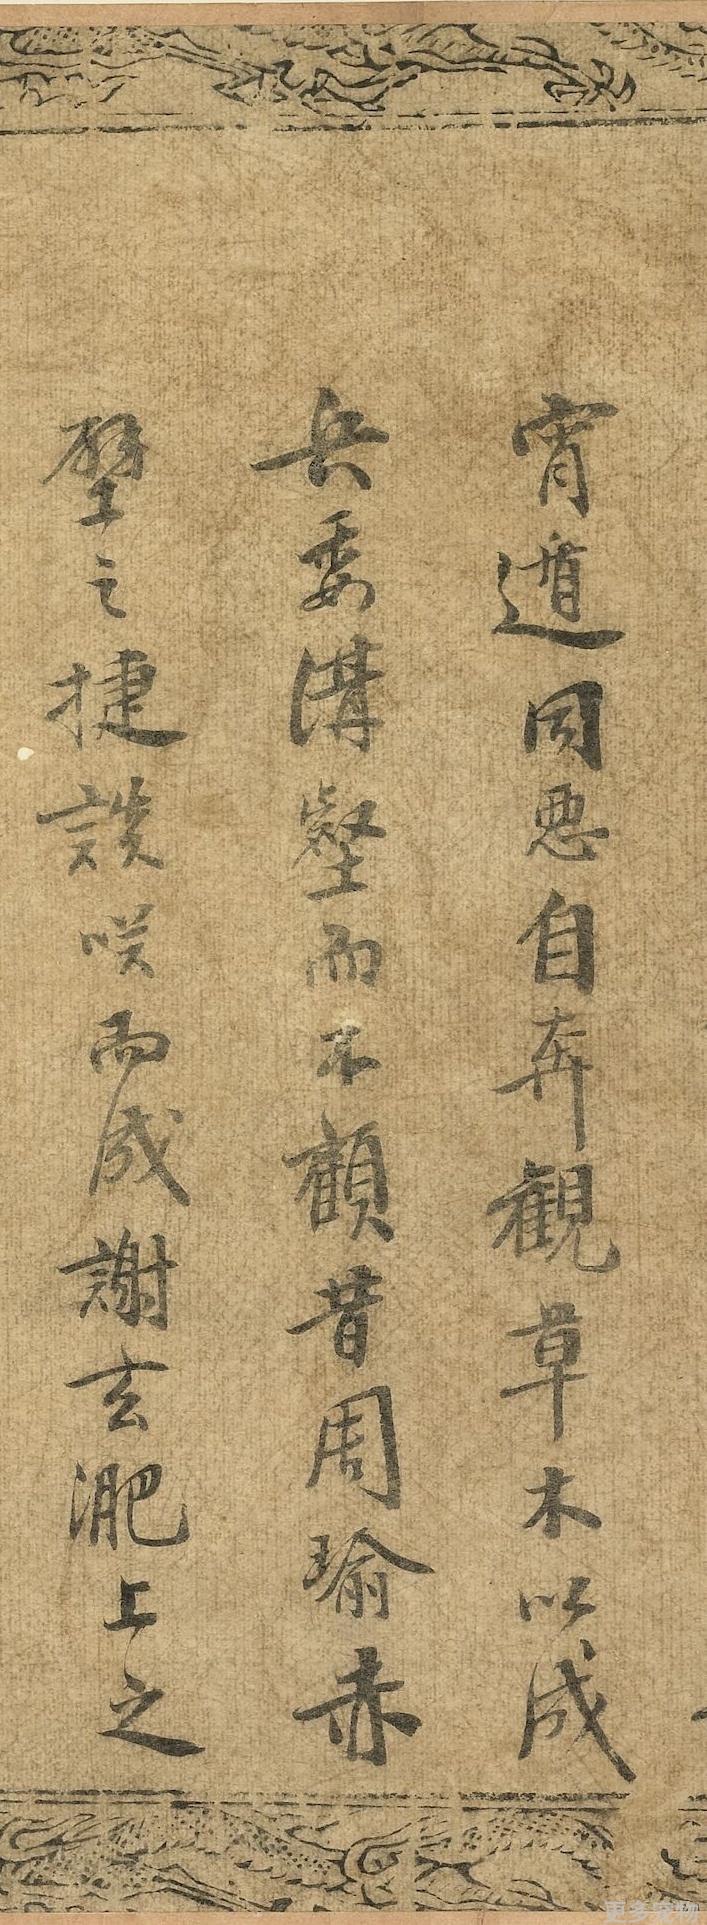 宵遁同惡自奔觀草木以成
兵委溝壑而不顧昔周瑜赤
壁之捷談咲而成謝玄淝上之
更多宝物